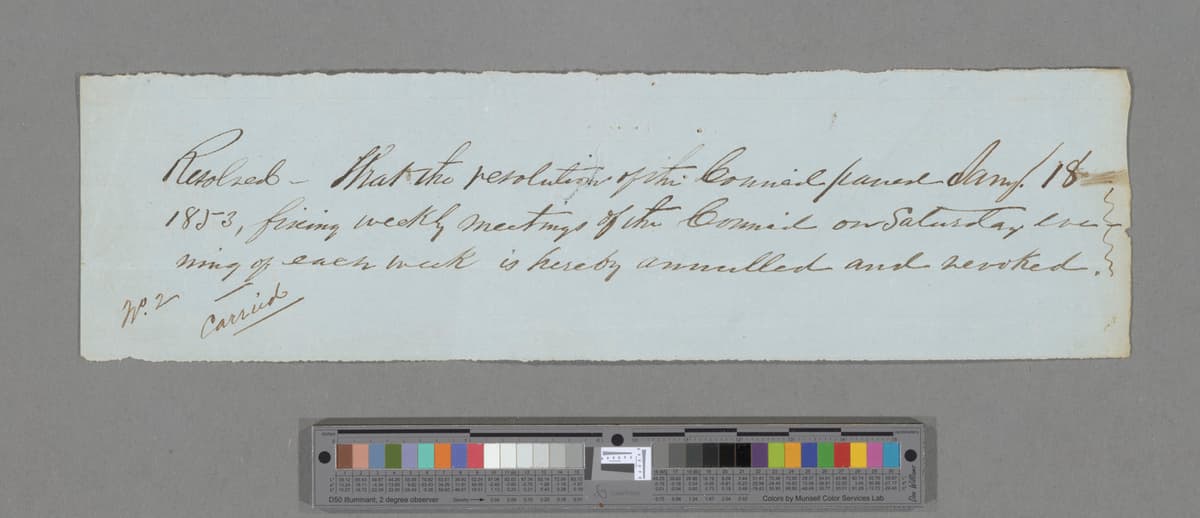 Resolved - That the resolution of the Council passed Jany. 18
1853, fixing weekly meetings of the Council on Saturday eve
ning of each week is hereby annulled and revoked.
No. 2
Carried
D50 Illuminant, 2 degree observer
Colors by Munsell Color Services Lab